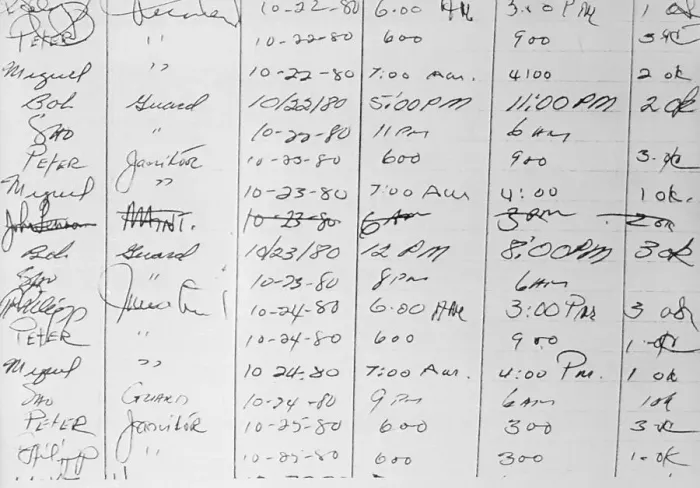 10-22-80 6:00 AM 3:00 PM 1 ok
PETER " 10-22-80 600 900 3 ok
Miguel " 10-22-80 7:00 Am. 4:00 2 ok
Bob Guard 10/22/80 5:00 PM 11:00 PM 2 ok
" 10-22-80 11 PM 6 AM
PETER Janitor 10-23-80 600 900 3-ok
Miguel " 10-23-80 7:00 Am 4:00 1 ok.
John Lennon MAINT. 10-23-80 6 AM 3 PM 2 ok
Bob Guard 10/23/80 12 PM 8:00 PM 3 ok
" 10-23-80 8 PM 6 AM
Philipp 10-24-80 6:00 AM 3:00 PM 3 ok
PETER " 10-24-80 600 900 1-ok
Miguel " 10 24-80 7:00 Am. 4:00 Pm. 1 ok
GUARD 10-24-80 9 PM 6 AM 1 ok
PETER Janitor 10-25-80 600 300 3-ok
Philipp " 10-25-80 600 300 1-ok